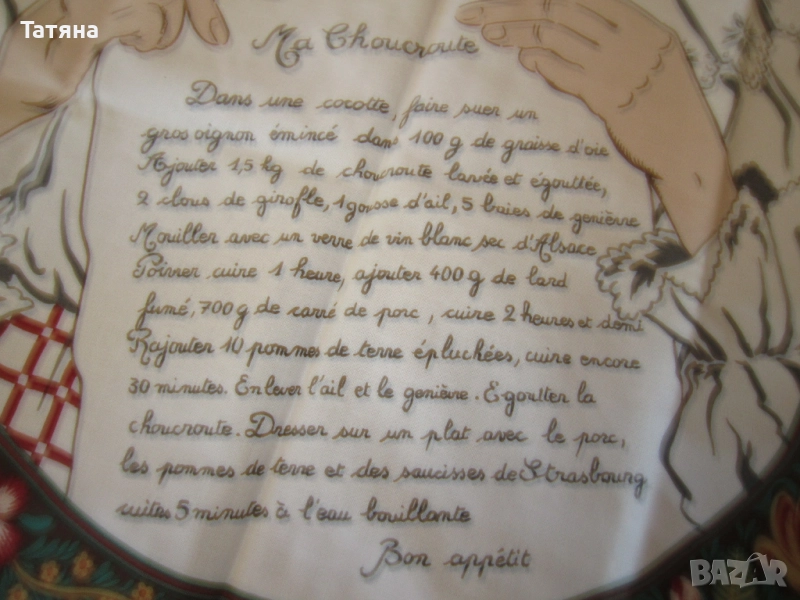 Татяна
Ma Choucroute
Dans une cocotte, faire suer un
gros oignon émincé dans 100 g de graisse d'oie
Ajouter 1,5 kg de choucroute lavée et égouttée,
2 clous de girofle, 1 gousse d'ail, 5 baies de genièvre
Mouiller avec un verre de vin blanc sec d'Alsace
Poivrer cuire 1 heure, ajouter 400 g de lard
fumé, 700 g de carré de porc, cuire 2 heures et demi
Rajouter 10 pommes de terre épluchées, cuire encore
30 minutes. Enlever l'ail et le genièvre. Egoutter la
choucroute. Dresser sur un plat avec le porc,
les pommes de terre et des saucisses de Strasbourg
cuites 5 minutes à l'eau bouillante
Bon appétit
BAZAR